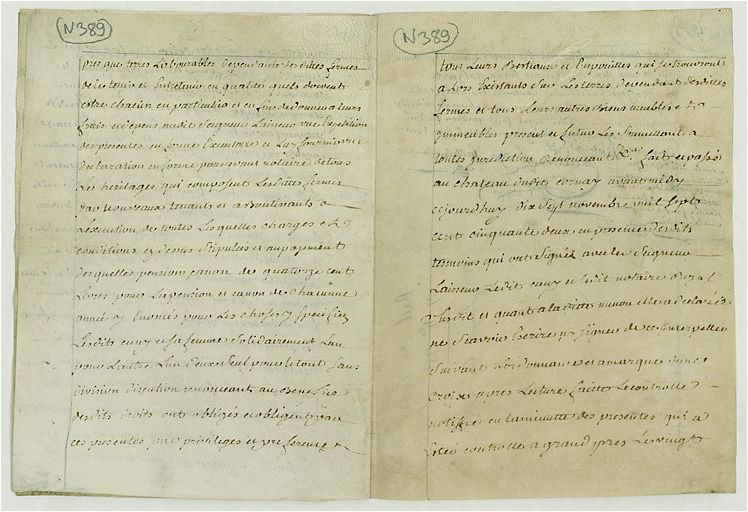 N 389
prés que terres Labourables dependants desdittes fermes
de les tenir et Entretenir en qualité quels doivent
estre chacun en particulier et en fin de donner a leurs
frais et depens audit Seigneur Laisseur une Expedition
des presentes en forme Executoire et Luy fournir une
declaration en forme par devant notaire de tous
Les heritages qui composent Lesdittes fermes
par nouveaux tenants et aboutissants a
L'execution de toutes Lesquelles charges
conditions cy dessus Stipulés et au payement
desquelles pension canon de quatorze cent
Livres pour La pension et canon de chacunne
année y Enoncés pour Les choses y specifiés
Lesdits cuny et sa femme Solidairement L'un
pour L'autre L'un d'eux Seul pour le tout Sans
division discution renonceant au Benefice
desdits droits ont obligés et obligent par
ces presentes par privileges et preference
N 389
tous Leurs Bestiaux et Empouilles qui se trouveront
a Lors Existants Sur Les terres dependant desdittes
fermes et tous Leurs autres biens meubles et
immeubles present et futur Les Soumettant a
toutes jurediction Renonceant fait et passé
au chateau dudit cornay avant midy
cejourdhuy dix Sept novembre mil Sept
cent cinquante deux en presences desdits
temoins qui ont Signéz avec le Seigneur
Laisseur Ledit cuny et ledit notaire
Susdit et quant a laditte elle a declaré
ne Scavoir Ecrire ny Signer de ce Interpellée
Suivant L'ordonnance et a marqué d'une
croix apres Lecture faitte Le controlle
notifié en la minutte des presentes qui a
Eté controllé a grand prez Le vingt